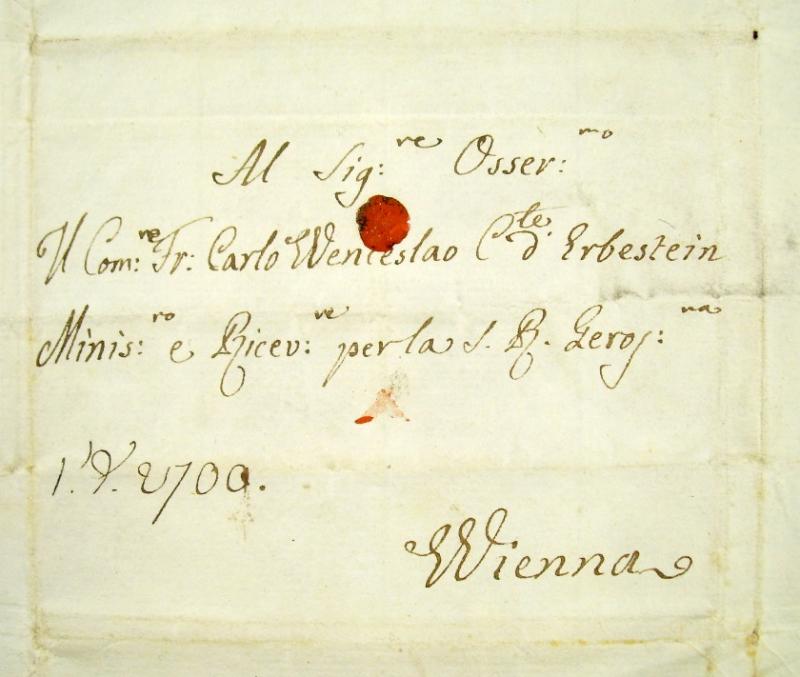 Al Sig:re Osser:mo
Il Com:re Fr: Carlo Wenceslao C.te d' Erbestein
Minis:ro e Ricev:re per la S. R. Geros:na
2700.
Wienna